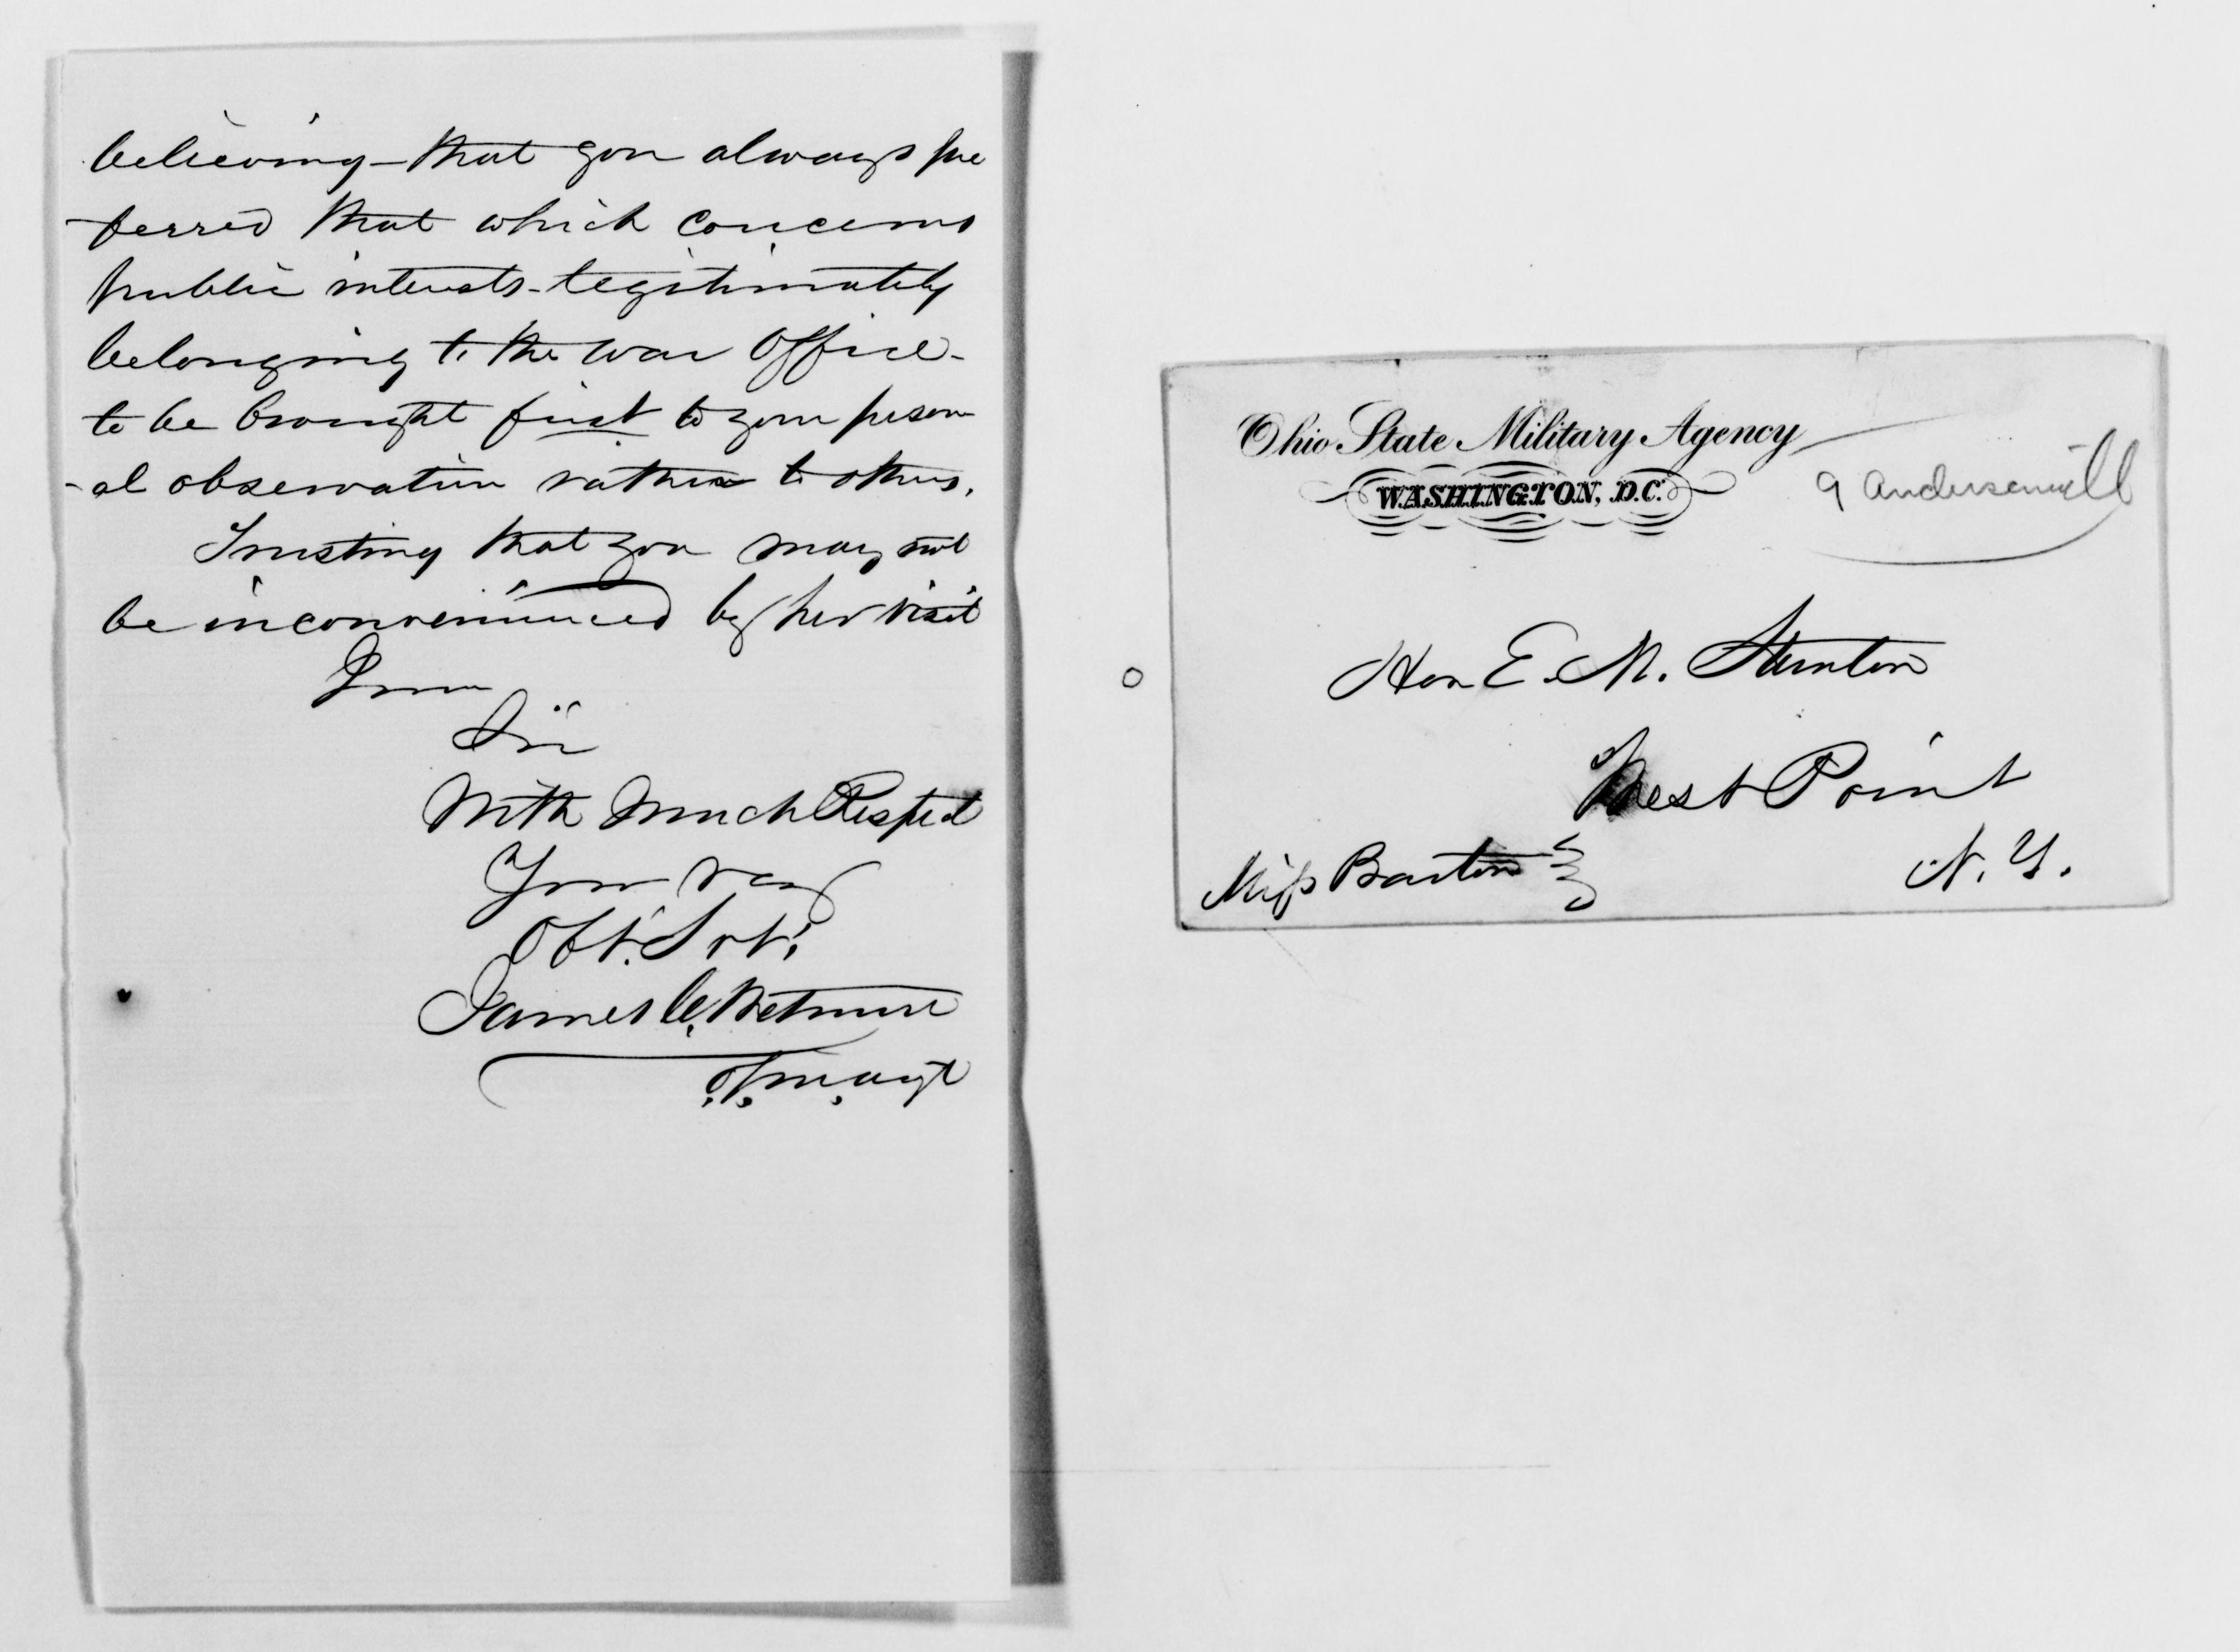 believing - that you always pre
-ferred that which concerns
public interests - legitimately
belonging to the War Office -
to be brought first to your person
-al observation rather to others.
Trusting that you may not
be inconvenienced by her visit
I am
Sir
With Much Respect
Your Very
Obt. Srvt.
James C. Wetmore
O. S. M. Agt
Ohio State Military Agency
WASHINGTON, D.C.
9 Andersonvill
Hon E. M. Stanton
West Point
N. Y.
Miss Barton